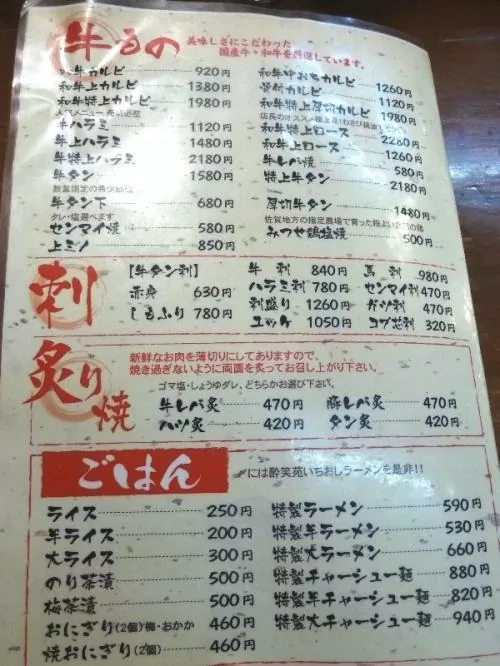 牛もの 美味しさにこだわった、
国産牛・和牛を厳選しています。
和牛カルビ 920円
和牛上カルビ 1380円
和牛特上カルビ 1980円
人気メニュー 売切必至
牛ハラミ 1120円
牛上ハラミ 1480円
牛特上ハラミ 2180円
牛タン 1580円
数量限定の希少部位
牛タン下 680円
タレ・塩選べます
センマイ焼 580円
上ミノ 850円
和牛中おちカルビ 1260円
骨付カルビ 1120円
和牛特上厚切カルビ 1980円
店長のオススメ極上逸!わさび醤油
和牛特上ロース 2280円
和牛上ロース 1260円
牛レバ焼 580円
特上牛タン 2180円
厚切牛タン 1480円
佐賀地方の指定農場で育った極上
みつせ鶏塩焼 500円
刺
【牛タン刺】
赤身 630円
しもふり 780円
牛刺 840円
ハラミ刺 780円
刺盛り 1260円
ユッケ 1050円
馬刺 980円
センマイ刺 470円
ガツ刺 470円
コブ芯刺 320円
炙り焼
新鮮なお肉を薄切りにしてありますので、
焼き過ぎないように両面を炙ってお召し上がり下さい。
ゴマ塩・しょうゆダレ、どちらかお選び下さい。
牛レバ炙 470円
ハツ炙 420円
豚レバ炙 470円
タン炙 420円
ごはん
には酔笑苑いちおしラーメンを是非!!
ライス 250円
半ライス 200円
大ライス 300円
のり茶漬 500円
梅茶漬 500円
おにぎり(2個)梅・おかか 460円
焼おにぎり(2個) 460円
特製ラーメン 590円
特製半ラーメン 530円
特製大ラーメン 660円
特製チャーシュー麺 880円
特製半チャーシュー麺 820円
特製大チャーシュー麺 940円